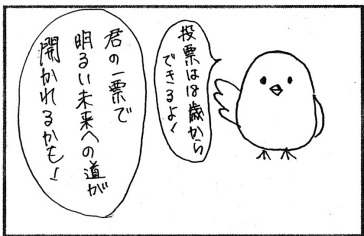 投票は18歳から
できるよ!
君の一票で
明るい未来への道が
開かれるかも!